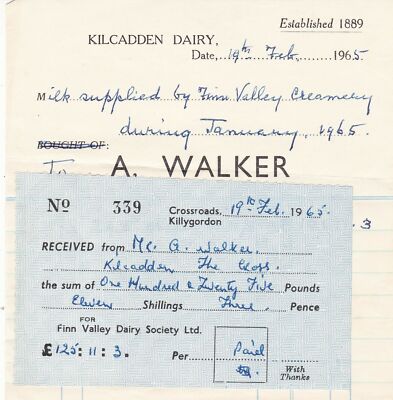 Established 1889
KILCADDEN DAIRY,
Date, 19th Feb. 1965
Milk supplied by Finn Valley Creamery
during January, 1965.
BOUGHT OF:
To A. WALKER
3
No 339 Crossroads, 19th Feb. 1965.
Killygordon
RECEIVED from Mr. G. Walker.
Kilcadden The Cross.
the sum of One Hundred & Twenty Five Pounds
Eleven Shillings Three Pence
FOR
Finn Valley Dairy Society Ltd.
£125:11:3. Per Paid
With
Thanks